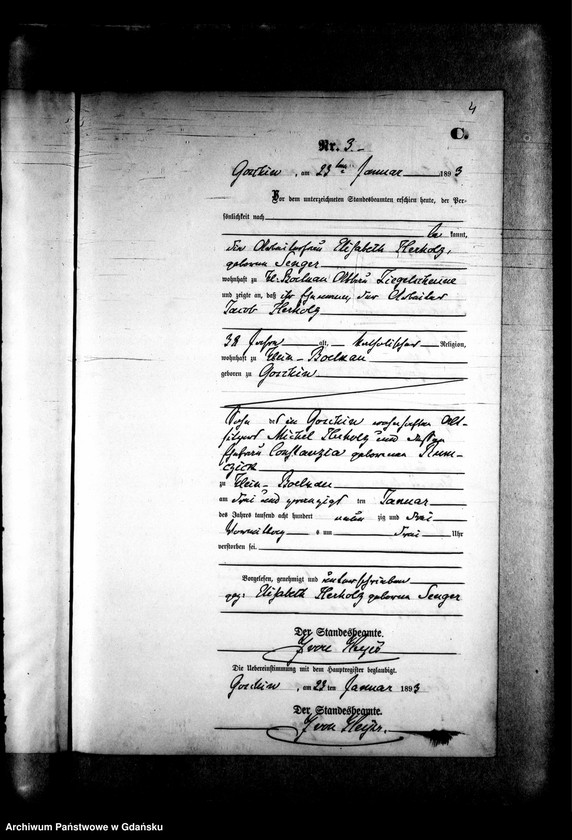 4
C.
Nr. 3.
am 23ten Januar 1893
Vor dem unterzeichneten Standesbeamten erschien heute, der Per-
sönlichkeit nach
kannt,
die Arbeiterfrau Elisabeth Herholz,
geborene Senger
wohnhaft zu Kl: Boelkau Abbau
und zeigte an, daß ihr Ehemann, der Arbeiter
Jacob Herholz
38 Jahre alt, katholischer Religion,
wohnhaft zu Klein-Boelkau
geboren zu
Sohn des in wohnhaften Alt-
sitzers Michel Herholz und dessen
Ehefrau Constanzia geborenen
zu Klein-Boelkau
am drei und zwanzigsten Januar
des Jahres tausend acht hundert neun zig und drei
Vormittag s um drei Uhr
verstorben sei.
Vorgelesen, genehmigt und unterschrieben
gez: Elisabeth Herholz geborene Senger
Der Standesbeamte.
von
Die Uebereinstimmung mit dem Hauptregister beglaubigt.
am 23 ten Januar 1893
Der Standesbeamte.
von
Archiwum Państwowe w Gdańsku